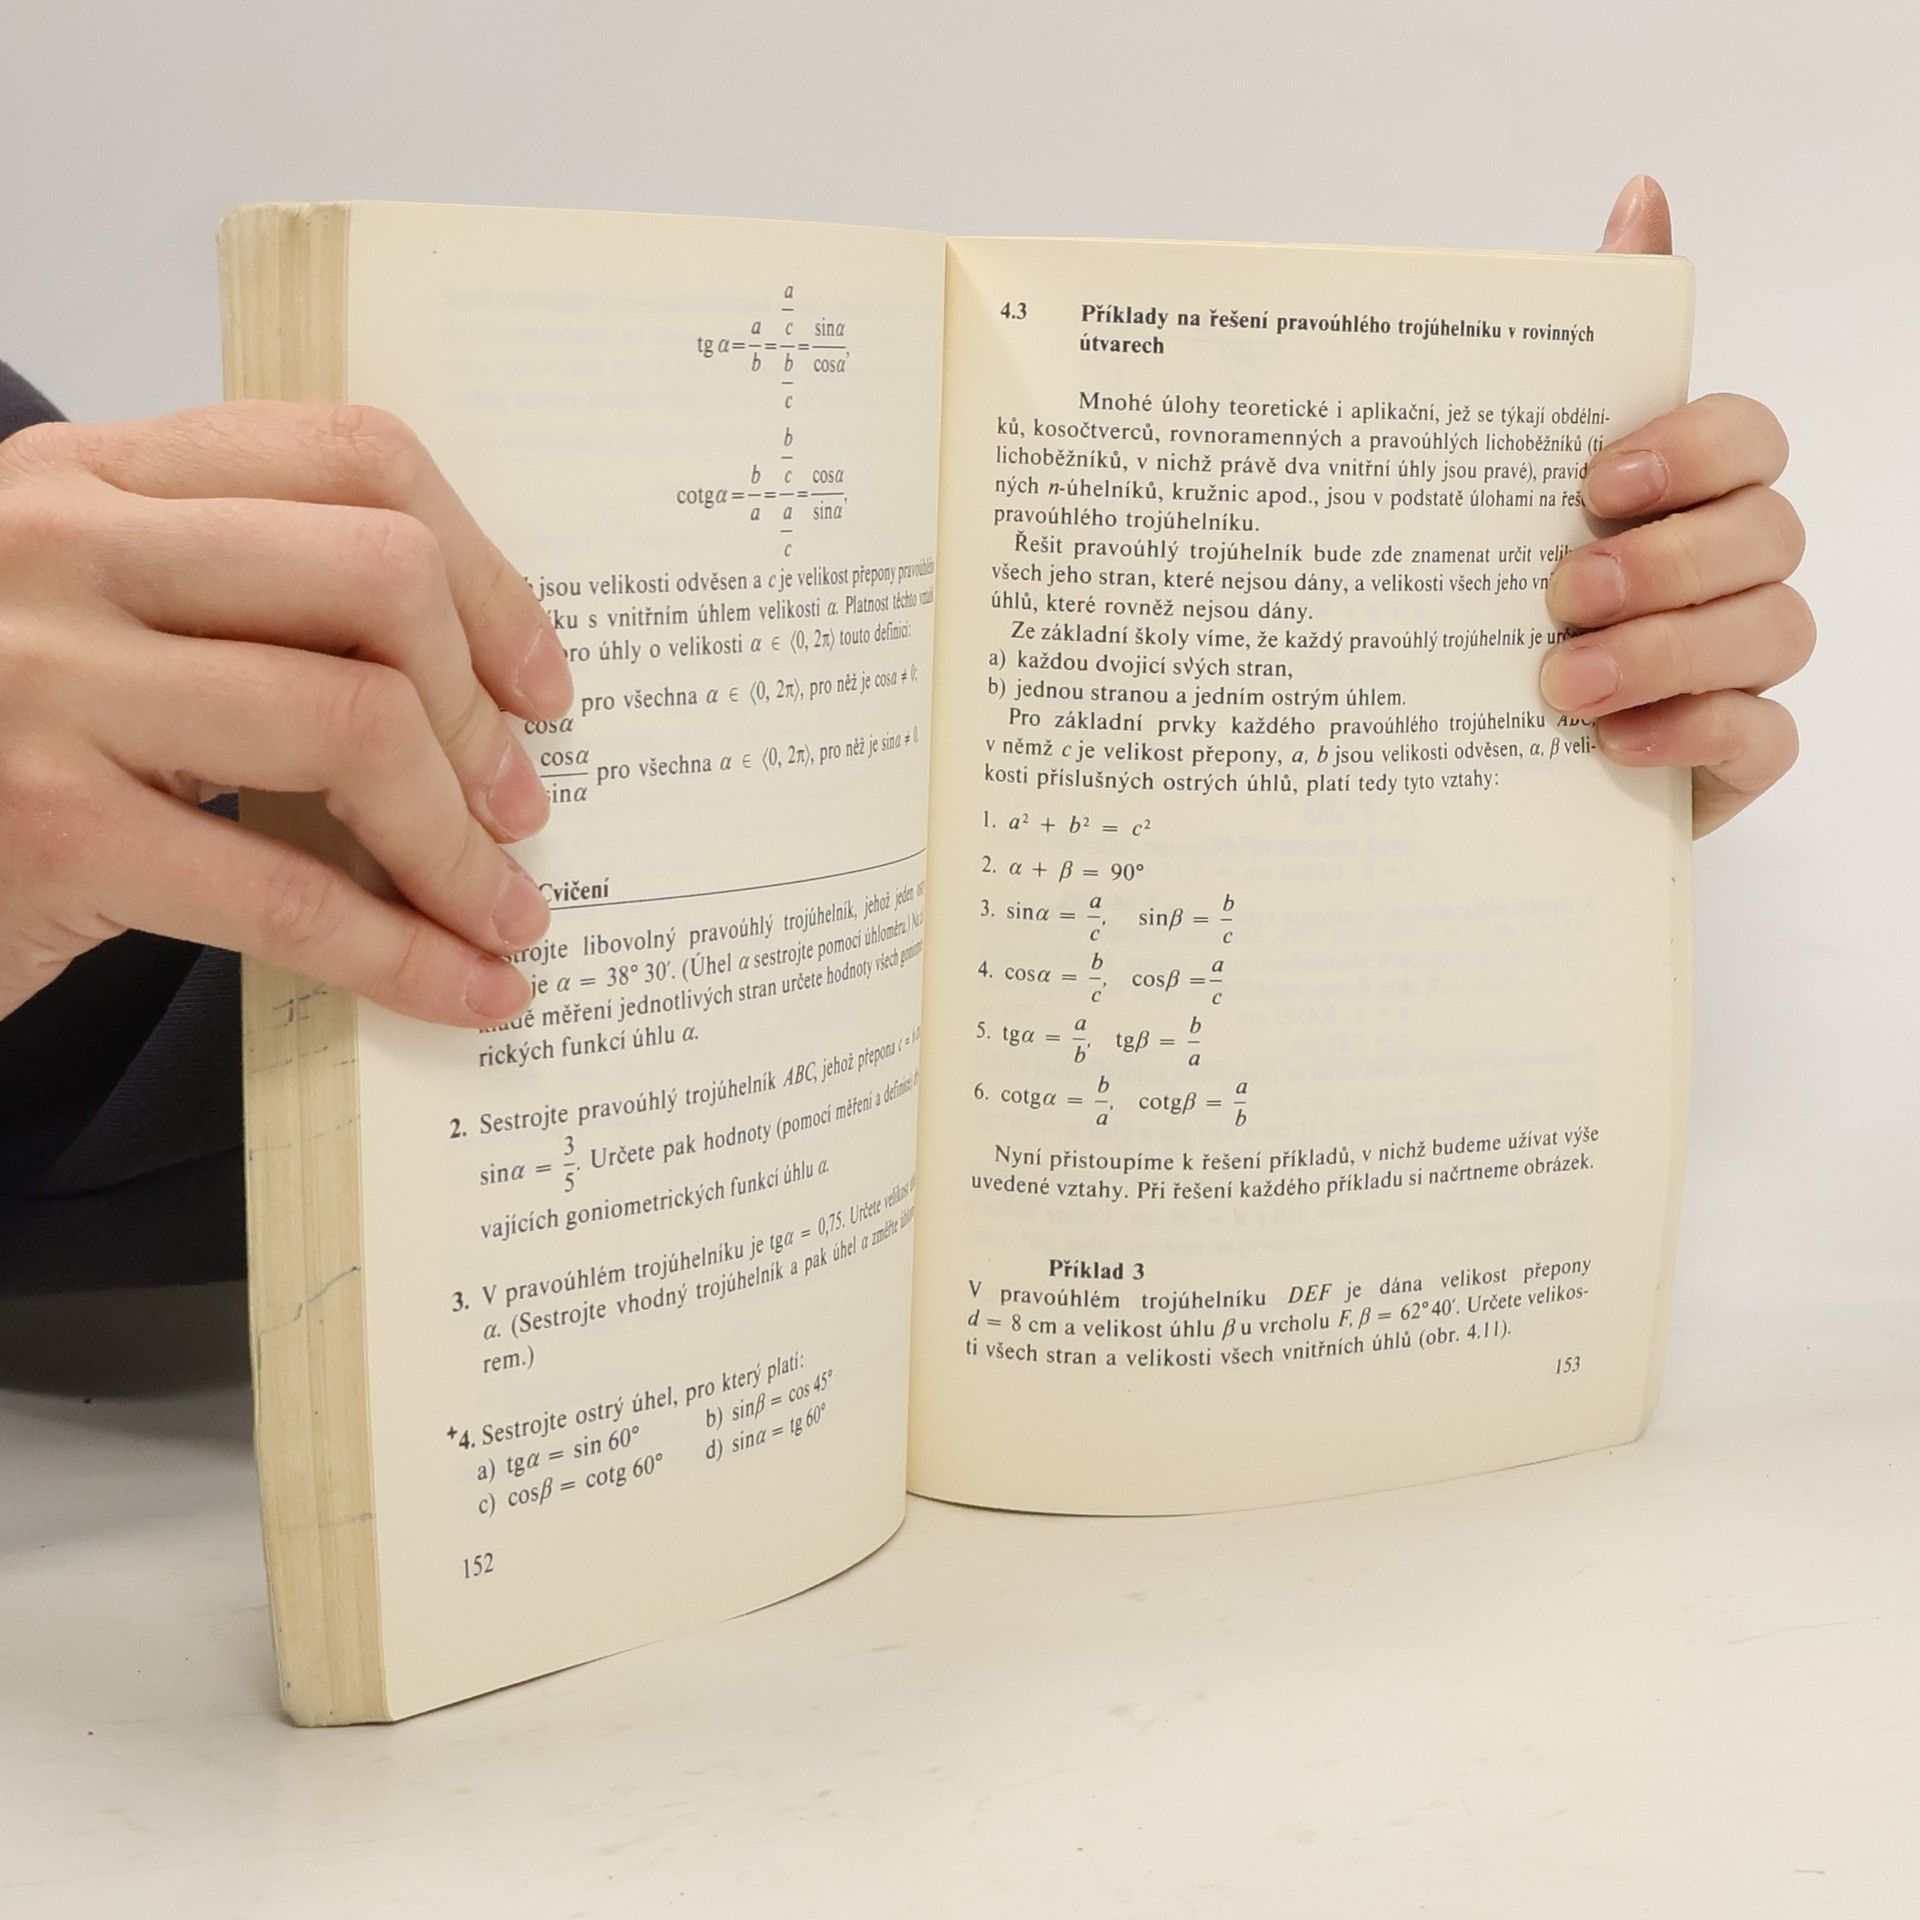 tg α = a/b = (a/c)/(b/c) = sinα/cosα,
cotgα = b/a = (b/c)/(a/c) = cosα/sinα,
jsou velikosti odvěsen a c je velikost přepony
s vnitřním úhlem velikosti α. Platnost těchto
úhly o velikosti α ∈ ⟨0, 2π) touto definicí:
cosα pro všechna α ∈ ⟨0, 2π), pro něž je cosα ≠ 0;
cosα/sinα pro všechna α ∈ ⟨0, 2π), pro něž je sinα ≠ 0.
Cvičení
libovolný pravoúhlý trojúhelník, jehož jeden
je α = 38° 30′. (Úhel α sestrojte pomocí úhloměru.)
měření jednotlivých stran určete hodnoty všech
rických funkcí úhlu α.
2. Sestrojte pravoúhlý trojúhelník ABC, jehož přepona c =
sinα = 3/5. Určete pak hodnoty (pomocí měření a definice)
vajících goniometrických funkcí úhlu α.
3. V pravoúhlém trojúhelníku je tgα = 0,75. Určete velikost
α. (Sestrojte vhodný trojúhelník a pak úhel α změřte
rem.)
+4. Sestrojte ostrý úhel, pro který platí:
a) tgα = sin 60° b) sinβ = cos 45°
c) cosβ = cotg 60° d) sinα = tg 60°
152
4.3 Příklady na řešení pravoúhlého trojúhelníku v rovinných
útvarech
Mnohé úlohy teoretické i aplikační, jež se týkají obdélní-
ků, kosočtverců, rovnoramenných a pravoúhlých lichoběžníků
lichoběžníků, v nichž právě dva vnitřní úhly jsou pravé),
ných n-úhelníků, kružnic apod., jsou v podstatě úlohami na
pravoúhlého trojúhelníku.
Řešit pravoúhlý trojúhelník bude zde znamenat určit
všech jeho stran, které nejsou dány, a velikosti všech jeho
úhlů, které rovněž nejsou dány.
Ze základní školy víme, že každý pravoúhlý trojúhelník je
a) každou dvojicí svých stran,
b) jednou stranou a jedním ostrým úhlem.
Pro základní prvky každého pravoúhlého trojúhelníku ABC,
v němž c je velikost přepony, a, b jsou velikosti odvěsen, α, β veli-
kosti příslušných ostrých úhlů, platí tedy tyto vztahy:
1. a² + b² = c²
2. α + β = 90°
3. sinα = a/c, sinβ = b/c
4. cosα = b/c, cosβ = a/c
5. tgα = a/b, tgβ = b/a
6. cotgα = b/a, cotgβ = a/b
Nyní přistoupíme k řešení příkladů, v nichž budeme užívat výše
uvedené vztahy. Při řešení každého příkladu si načrtneme obrázek.
Příklad 3
V pravoúhlém trojúhelníku DEF je dána velikost přepony
d = 8 cm a velikost úhlu β u vrcholu F, β = 62°40′. Určete velikos-
ti všech stran a velikosti všech vnitřních úhlů (obr. 4.11).
153